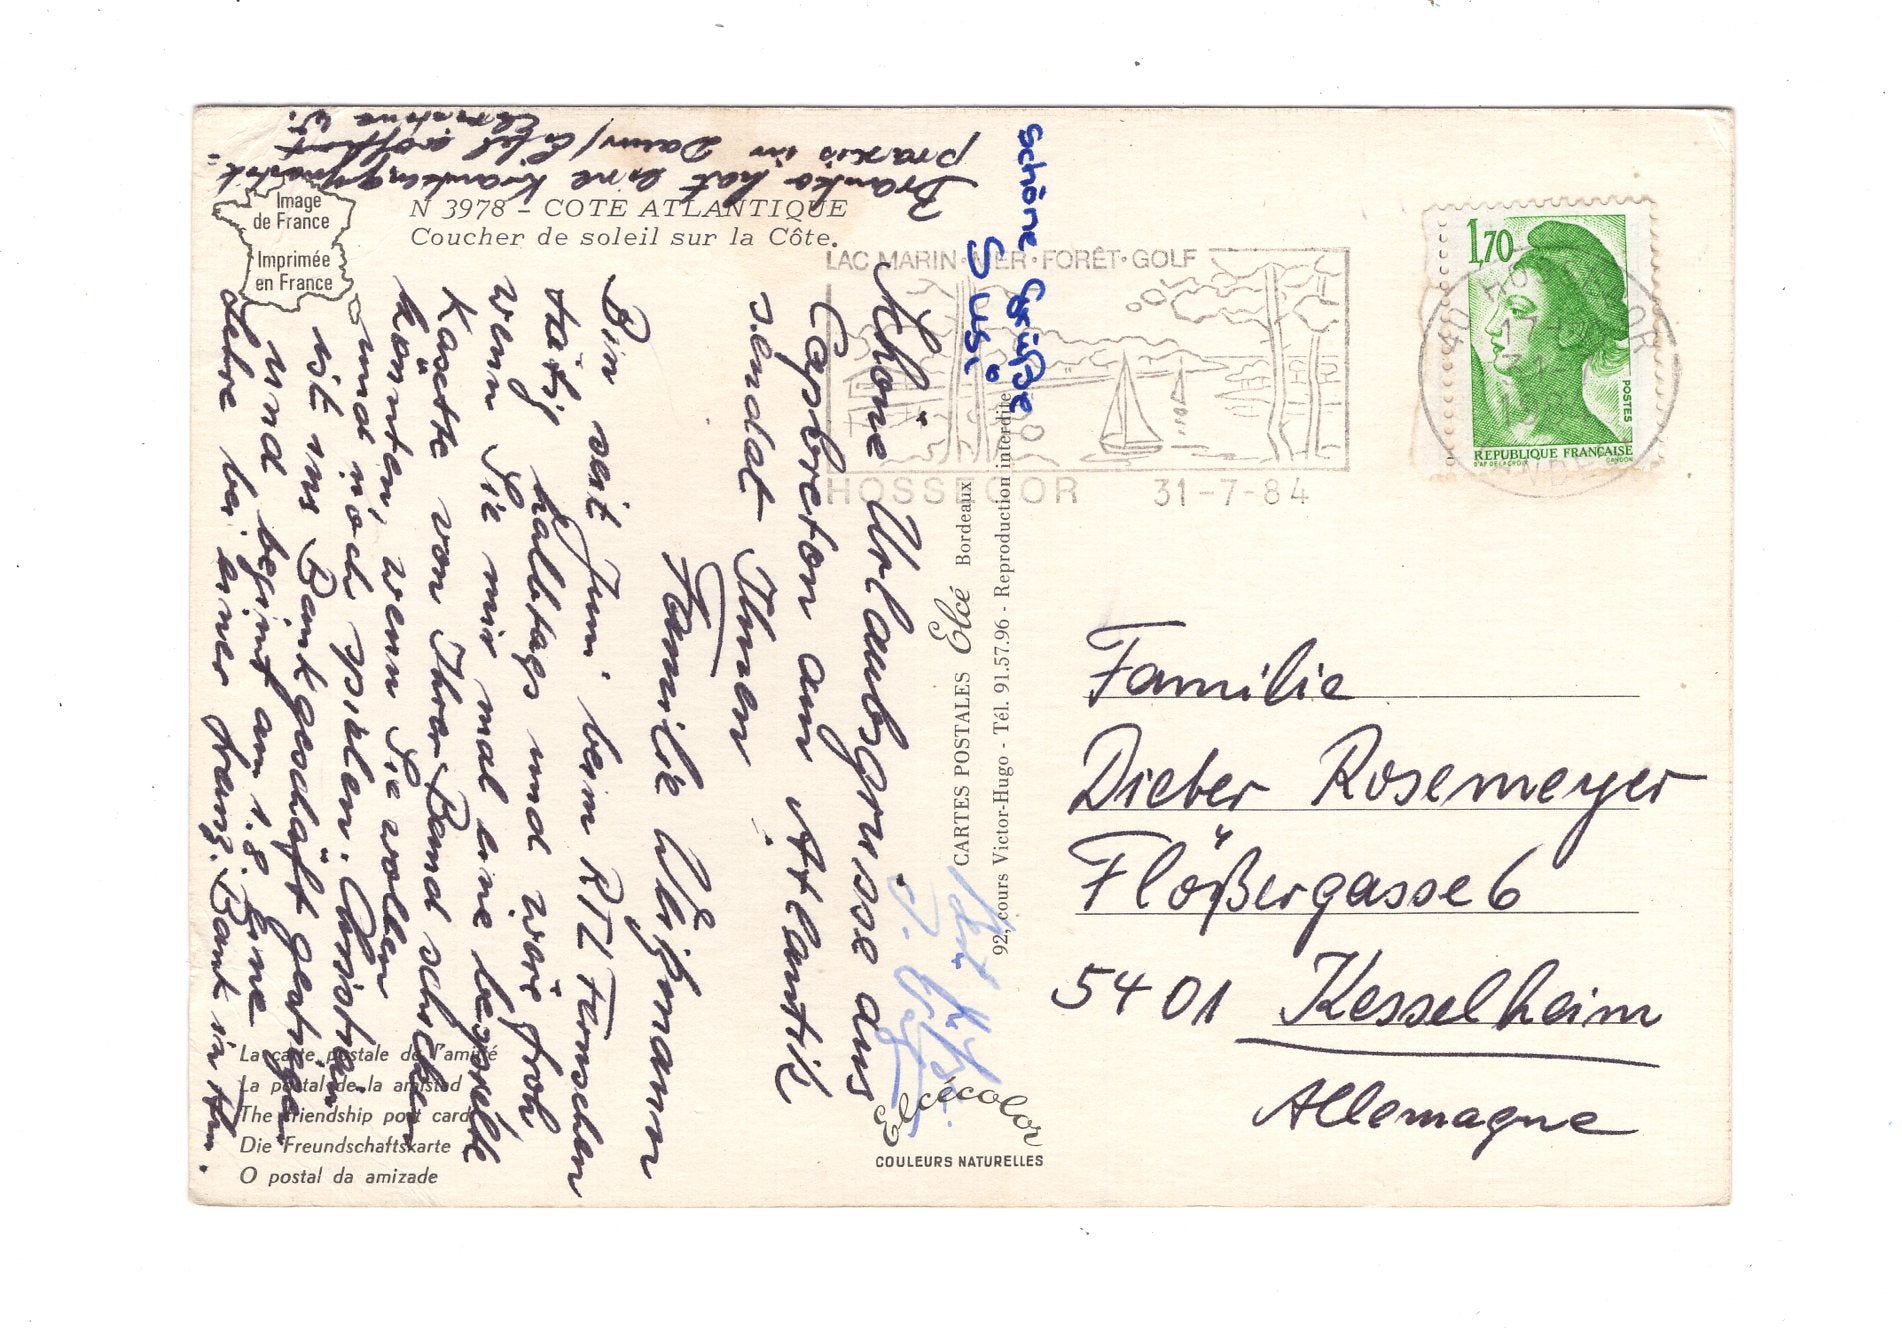 Image
de France
Imprimée
en France
N 3978 – COTE ATLANTIQUE
Coucher de soleil sur la Côte.
Schöne Urlaubsgrüsse aus
Capbreton am Atlantik
sendet Ihnen
Familie Wißmann
Bin seit Juni beim RTL Fernsehen
tätig halbtags und wäre froh,
wenn Sie mir mal eine
Kasette von Ihrer Band schicken
könnten, wenn Sie wollen
und noch spielen. Christian
ist ins Bankgeschäft gestiegen
und begint am 1.8 Eine
Lehre bei einer franz. Bank in
Branko hat eine Krankengymnastik-
praxis in Daun/Eifel eröffnet
Schöne Grüße
Susi
LAC MARIN·MER·FORÊT·GOLF
HOSSEGOR 31-7-84
1,70
POSTES
REPUBLIQUE FRANÇAISE
D'AP. DELACROIX GANDON
40 HOSSEGOR
CARTES POSTALES Elcé Bordeaux
92, cours Victor-Hugo - Tél. 91.57.96 - Reproduction interdite
Elcécolor
COULEURS NATURELLES
Familie
Dieter Rosemeyer
Flößergasse 6
5401 Kesselheim
Allemagne
La carte postale de l'amitié
La postal de la amistad
The friendship post card
Die Freundschaftskarte
O postal da amizade